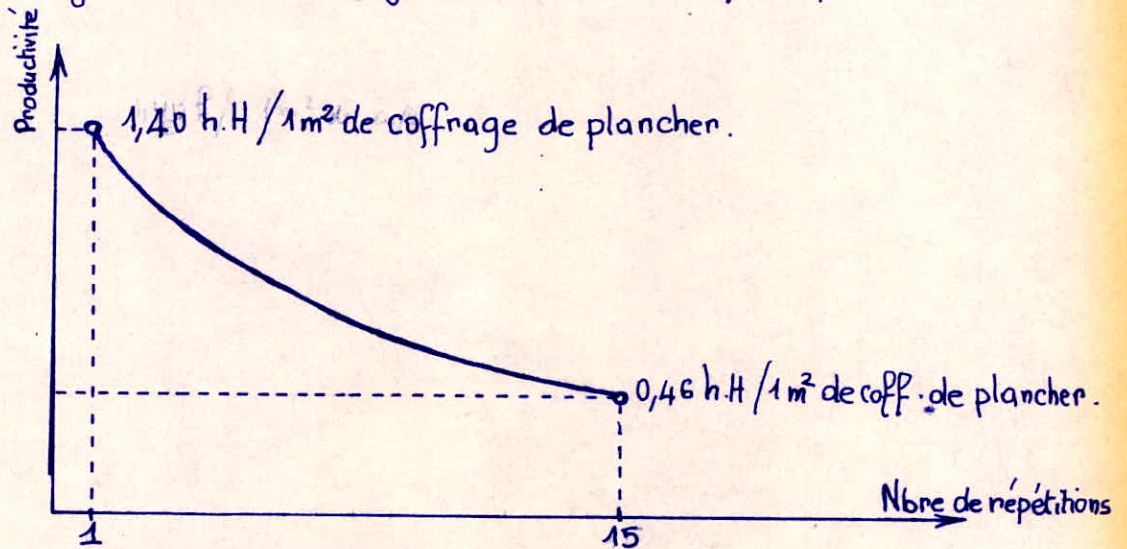 Productivité
1,40 h.H / 1m² de coffrage de plancher.
0,46 h.H / 1m² de coff. de plancher.
Nbre de répétitions
1
15